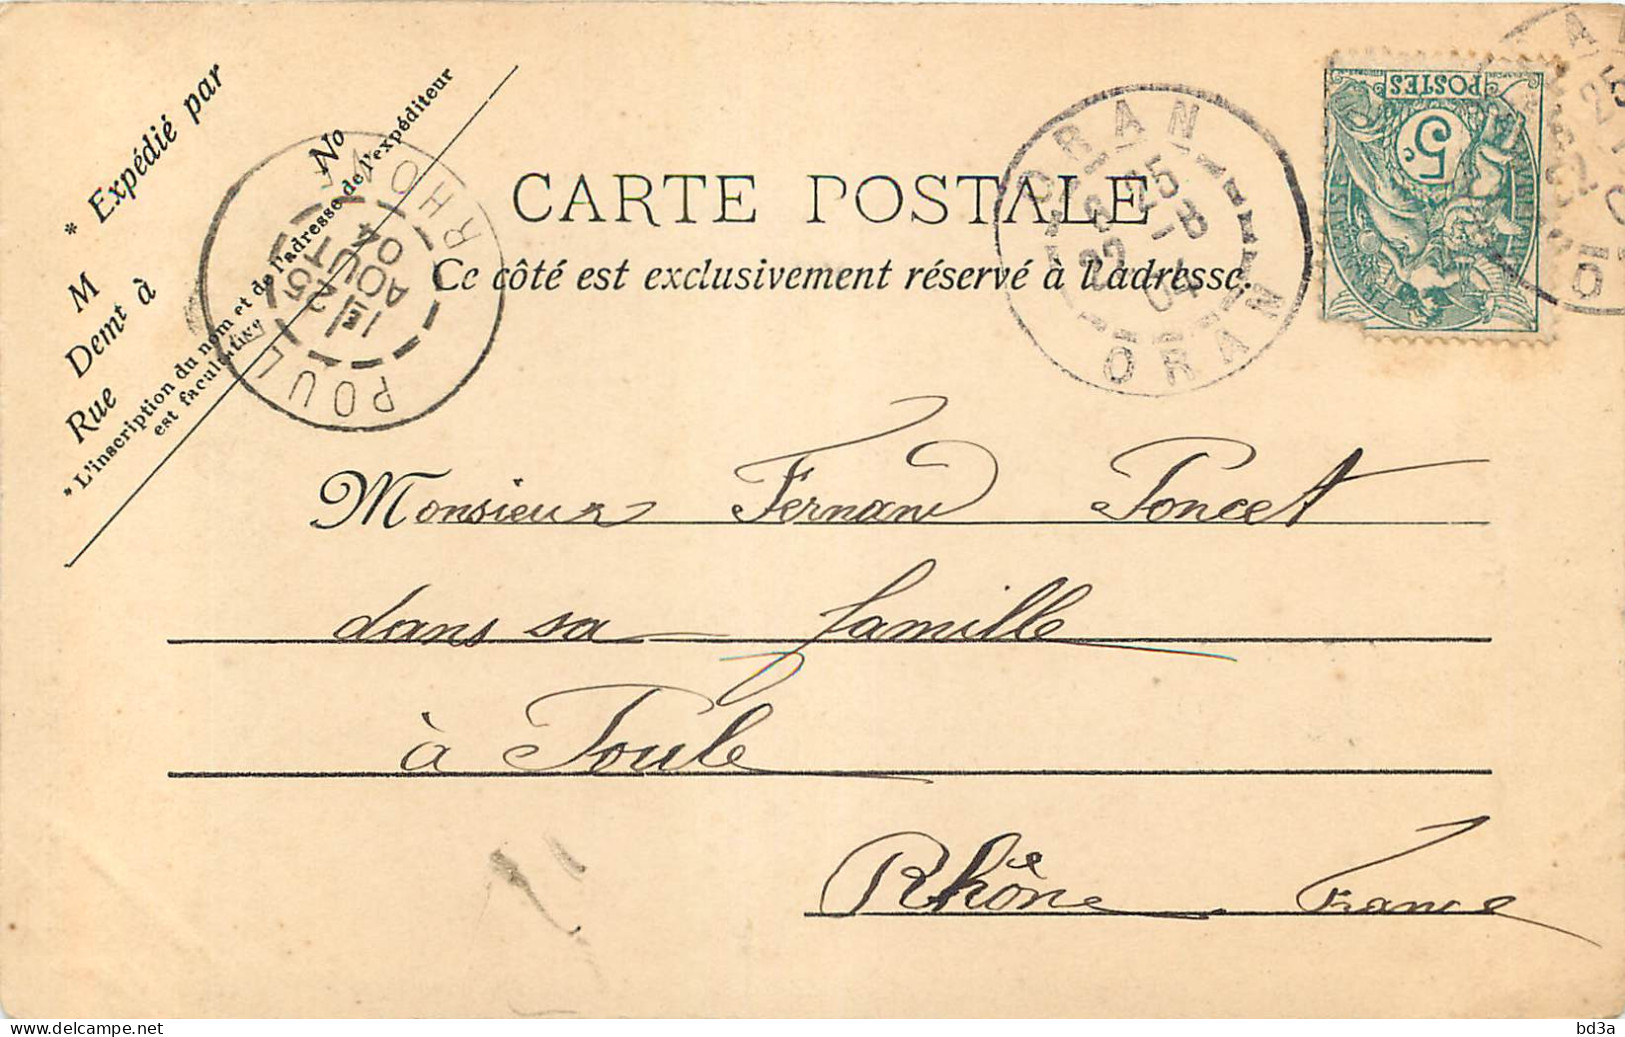 * Expédié par
M
Demt à
Rue
No
* L'inscription du nom et de l'adresse de l'expéditeur
est facultative
CARTE POSTALE
Ce côté est exclusivement réservé à l'adresse.
POULE RHONE
1E
25
AOUT
04
ORAN
8 25
22 -8
04
ORAN
POSTES
5c
Monsieur Fernand Poncet
dans sa famille
à Poule
Rhône. France
delcampe.net
bd3a